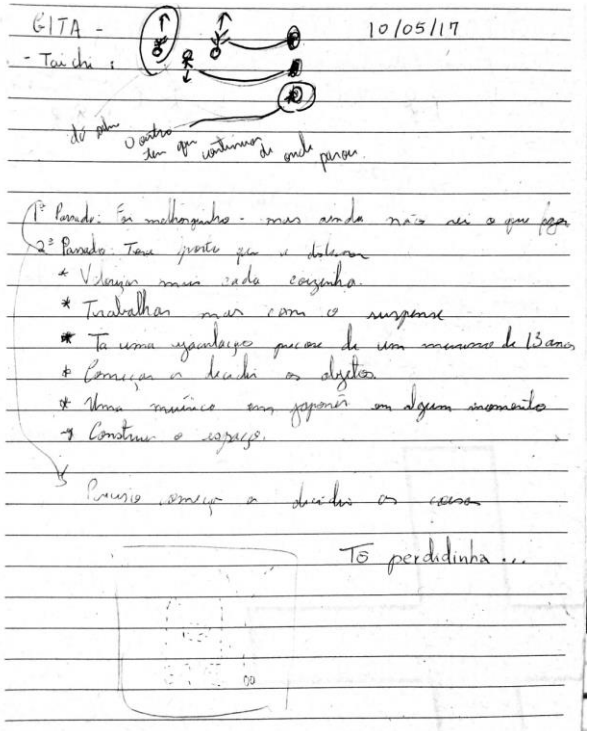 GITA - 10/05/17
- Tai chi :
O outro
tem que continuar de onde parou.
1º Passada: Foi melhorzinho - mas ainda não sei o que fazer
2ª Passada: Teve gente que
* Valorizar mais cada coizinha.
* Trabalhar mais com o suspense
* Ta uma ejaculação precose de um menino de 13 anos
* Começar a decidir os objetos.
* Uma música em japonês em algum momento
→ Construir o espaço.
Preciso começar a decidir as coisas
Tô perdidinha...